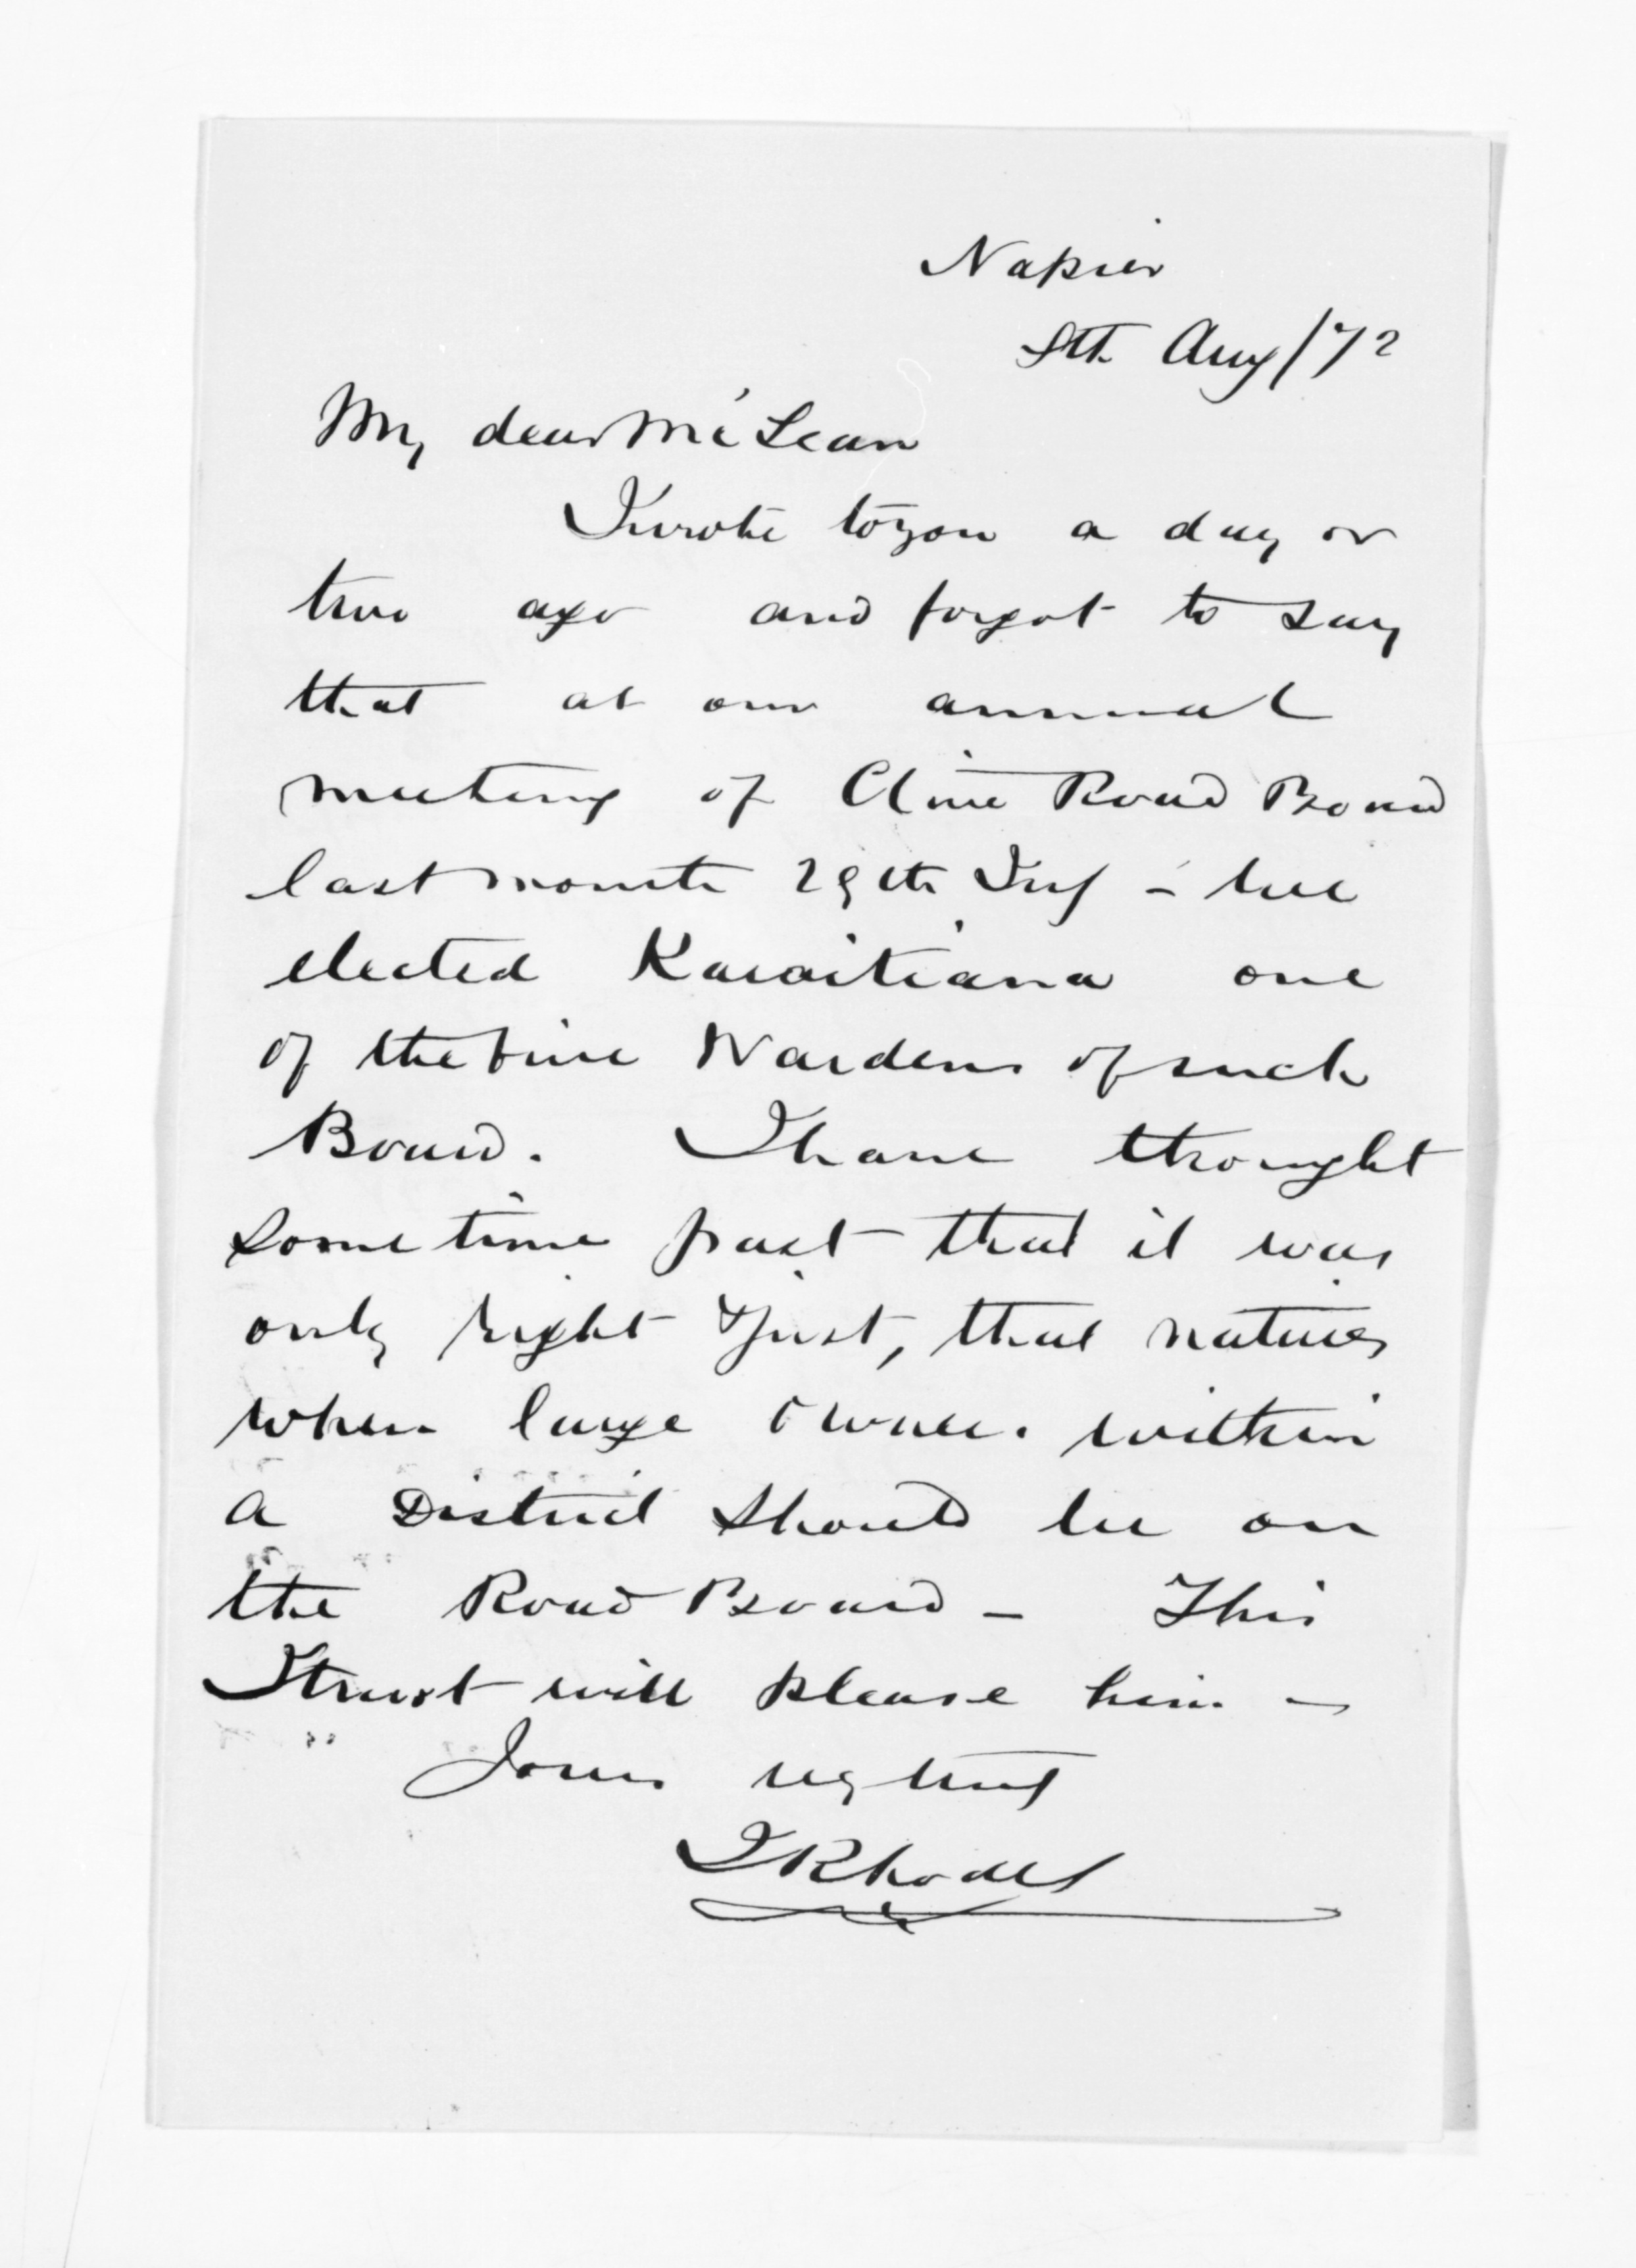 Napier
8th Aug/72
My dear McLean
I wrote to you a day or
two ago and forgot to say
that at our annual
meeting of Clive Road Board
last month 29th July - we
elected Karaitiana one
of the five Wardens of such
Board. I have thought
some time past that it was
only right & just, that natives
when large owners within
a District should be on
the Road Board - This
I trust will please him -
Yours very truly
J Rhodes